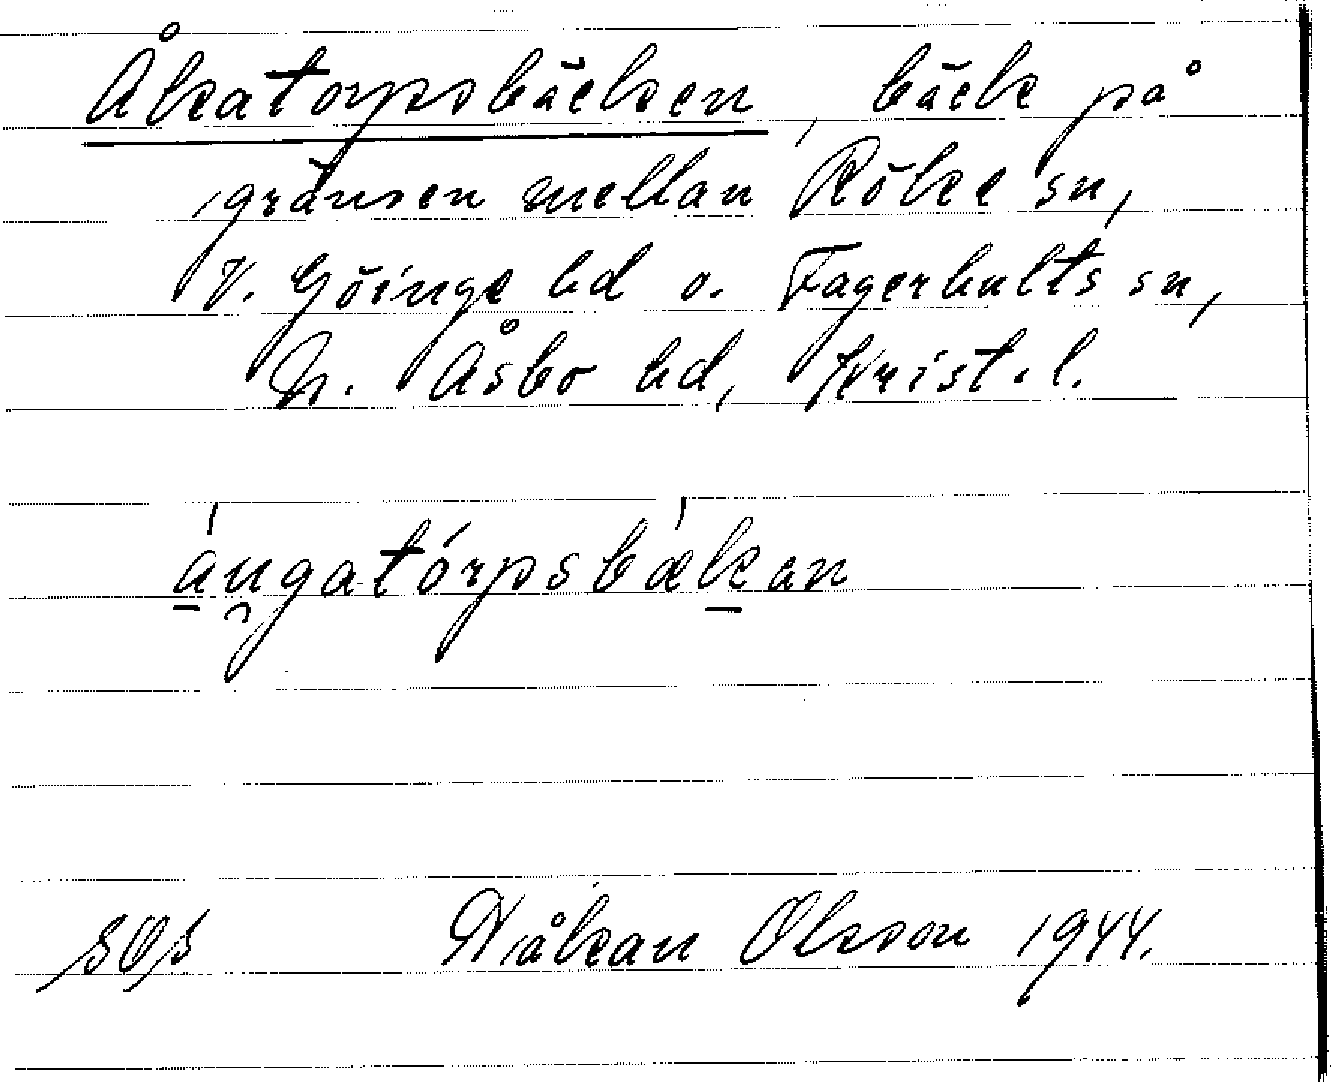 Åkatorpsbäcken, bäck på
gränsen mellan Röke sn,
V. Göinge hd o. Fagerhults sn,
N. Åsbo hd, Krist. l.
áu̯gatórpsbækan
Håkan Olsson 1944.